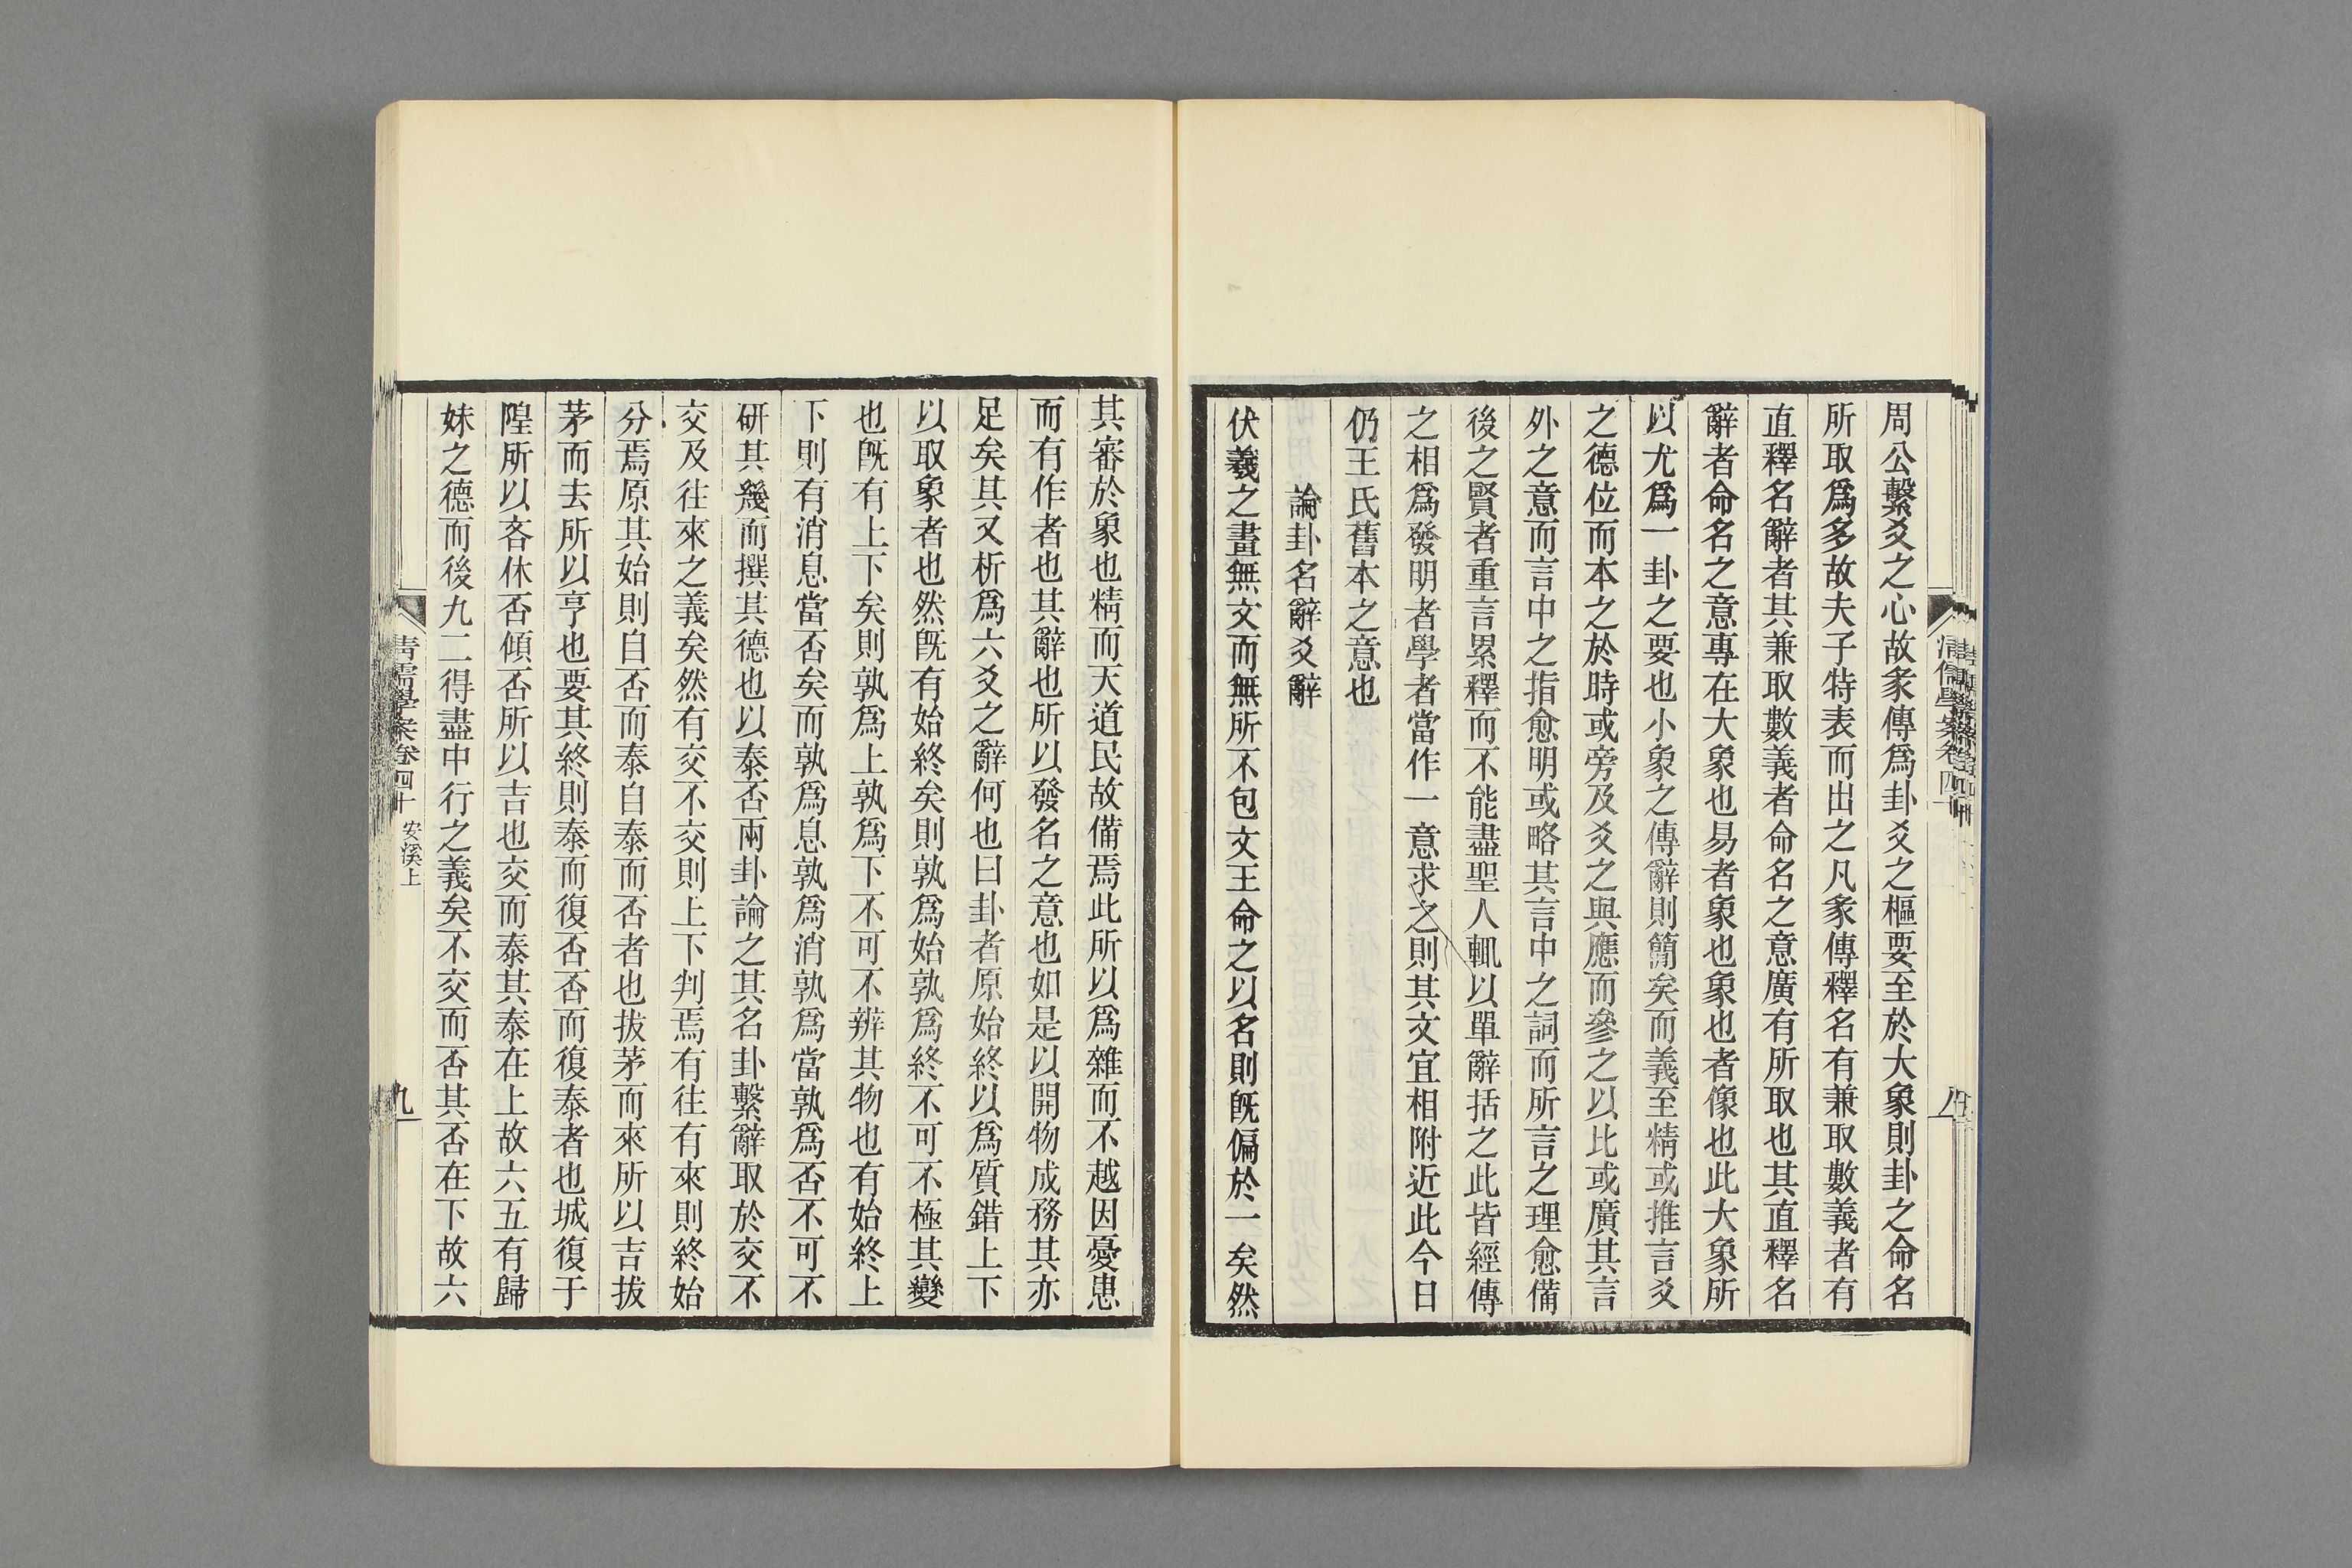 周公繫爻之心故彖傳爲卦爻之樞要至於大象則卦之命名
所取爲多故夫子特表而出之凡彖傳釋名有兼取數義者有
直釋名辭者其兼取數義者命名之意廣有所取也其直釋名
辭者命名之意專在大象也易者象也象也者像也此大象所
以尤爲一卦之要也小象之傳辭則簡矣而義至精或推言爻
之德位而本之於時或旁及爻之與應而參之以比或廣其言
外之意而言中之指愈明或略其言中之詞而所言之理愈備
後之賢者重言累釋而不能盡聖人輒以單辭括之此皆經傳
之相爲發明者學者當作一意求之則其文宜相附近此今日
仍王氏舊本之意也
論卦名辭爻辭
伏羲之畫無文而無所不包文王命之以名則既偏於一矣然
其審於象也精而天道民故備焉此所以爲雜而不越因憂患
而有作者也其辭也所以發名之意也如是以開物成務其亦
足矣其又析爲六爻之辭何也曰卦者原始終以爲質錯上下
以取象者也然既有始終矣則孰爲始孰爲終不可不極其變
也既有上下矣則孰爲上孰爲下不可不辨其物也有始終上
下則有消息當否矣而孰爲息孰爲消孰爲當孰爲否不可不
研其幾而撰其德也以泰否兩卦論之其名卦繫辭取於交不
交及往來之義矣然有交不交則上下判焉有往有來則終始
分焉原其始則自否而泰自泰而否者也拔茅而來所以吉拔
茅而去所以亨也要其終則泰而復否否而復泰者也城復于
隍所以吝休否傾否所以吉也交而泰其泰在上故六五有歸
妹之德而後九二得盡中行之義矣不交而否其否在下故六
清儒學案卷四十 安溪上
九